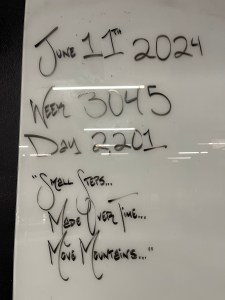 June 11th 2024
Week 3045
Day 2201
"Small Steps...
Made Over Time...
Move Mountains..."